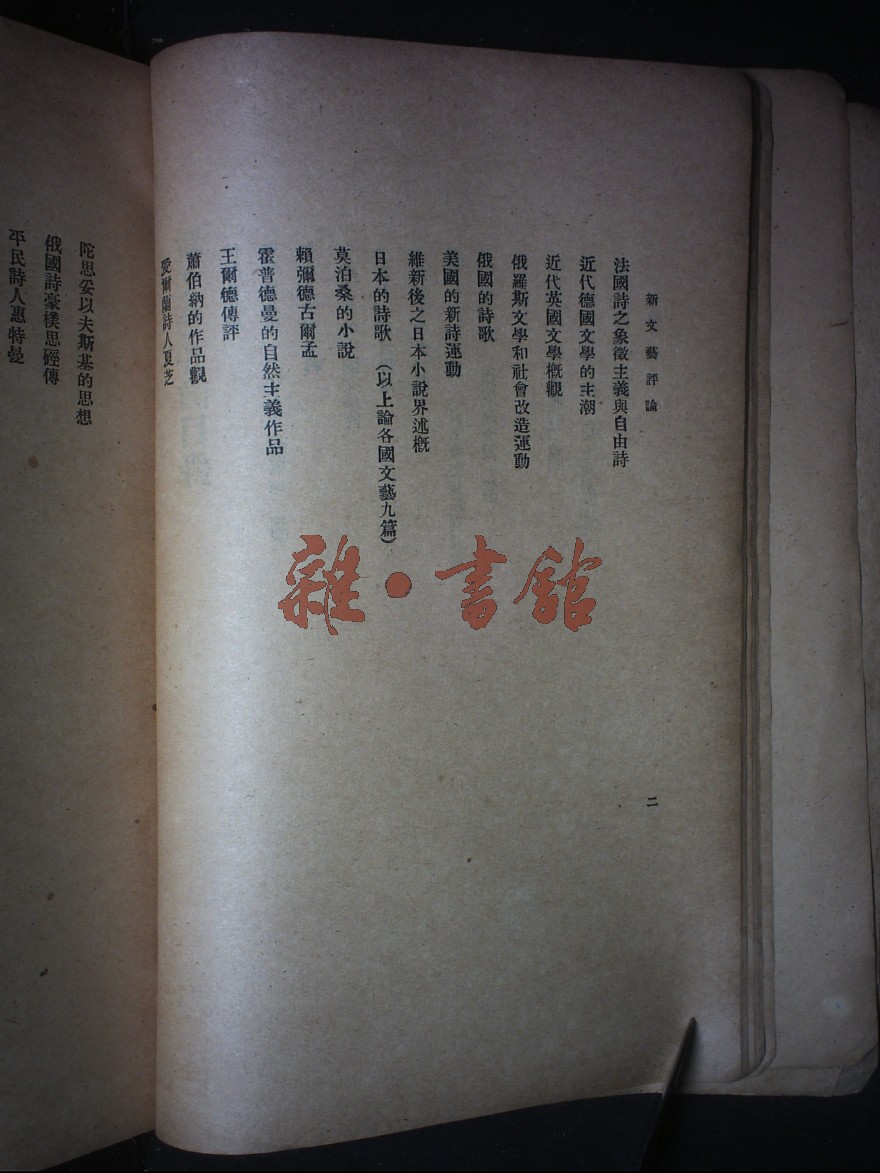 新文藝評論
二
法國詩之象徵主義與自由詩
近代德國文學的主潮
近代英國文學概觀
俄羅斯文學和社會改造運動
俄國的詩歌
美國的新詩運動
維新後之日本小說界述概
日本的詩歌（以上論各國文藝九篇）
莫泊桑的小說
賴彌德古爾孟
霍普德曼的自然主義作品
王爾德傳評
蕭伯納的作品觀
愛爾蘭詩人夏芝
陀思妥以夫斯基的思想
俄國詩豪樸思硜傳
平民詩人惠特曼
雜·書館